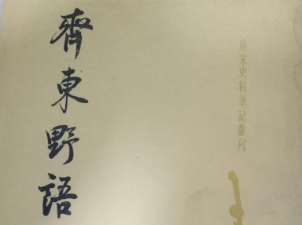 唐宋史料筆記叢刊
齊東野語